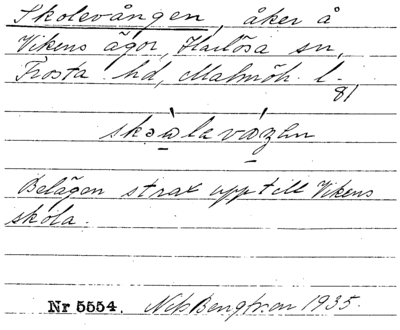 Skolevången, åker å
Vikens ägor, Harlösa sn,
Frosta hd, Malmöh. l.
81
Belägen strax upp till Vikens
skola.
Nr 5554. Nils Bengtsson 1935.